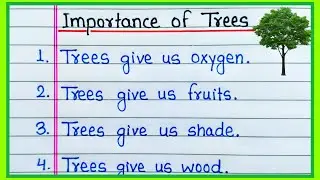 Importance of Trees
1. Trees give us oxygen.
2. Trees give us fruits.
3. Trees give us shade.
4. Trees give us wood.